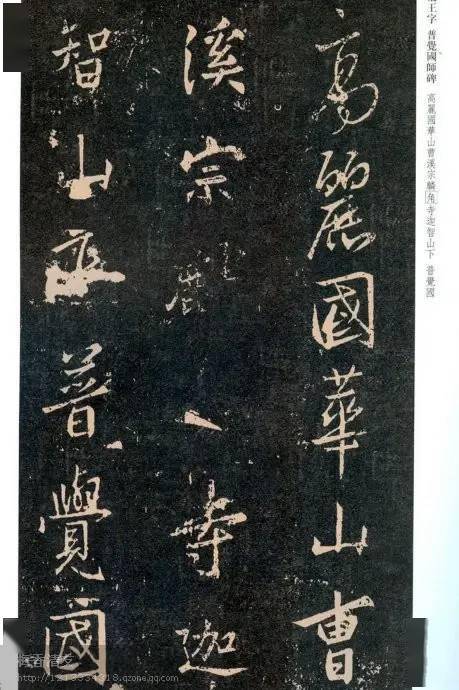 高麗國華山曹
溪宗麟寺迦
智山下普覺國
王字 普覺國師碑 高麗國華山曹溪宗麟角寺迦智山下 普覺國
qzone.qq.com/